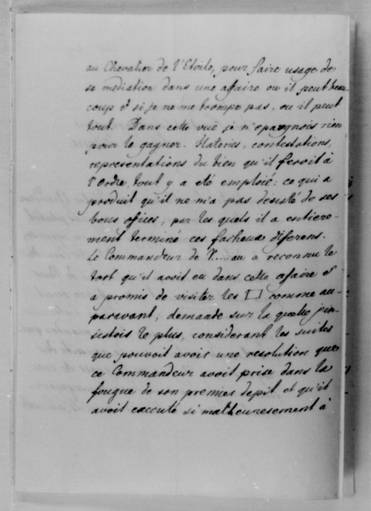 au Chevalier de l'Etoile, pour faire usage de
sa mediation dans une afaire ou il peut beau
coup et si je ne me trompe pas, ou il peut
tout. Dans cette vuë je n'epargnois rien
pour le gagner. flateries, contestations,
representations du bien qu'il feroit à
l'Ordre, tout y a été emploié: ce qui a
produit qu'il ne m'a pas desisté de ses
bons ofices, par les quels il a entiere-
ment terminé ces facheux diferens.
Le Commandeur de V....au a reconnu le
tort qu'il avoit eu dans cette afaire et
a promis de visiter les [ ] comme au-
paravant, demande sur la quelle j'in-
sistois le plus, considerant les suites
que pouvoit avoir une resolution que
ce Commandeur avoit prise dans la
fougue de son premier depit, et qu'il
avoit executé si malheuresement à